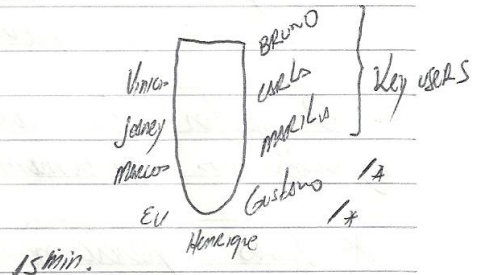 BRUNO
Vinicius
CARLA
Key USERS
Jedney
MARILIA
Marcos
Gustavo /*
EU
/*
Henrique
15 min.